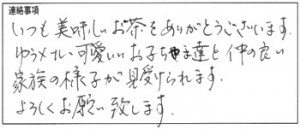 連絡事項
いつも美味しいお茶をありがとうございます。
可愛いいお子ちゃま達と仲の良い
家族の様子が見受けられます。
よろしくお願い致します。